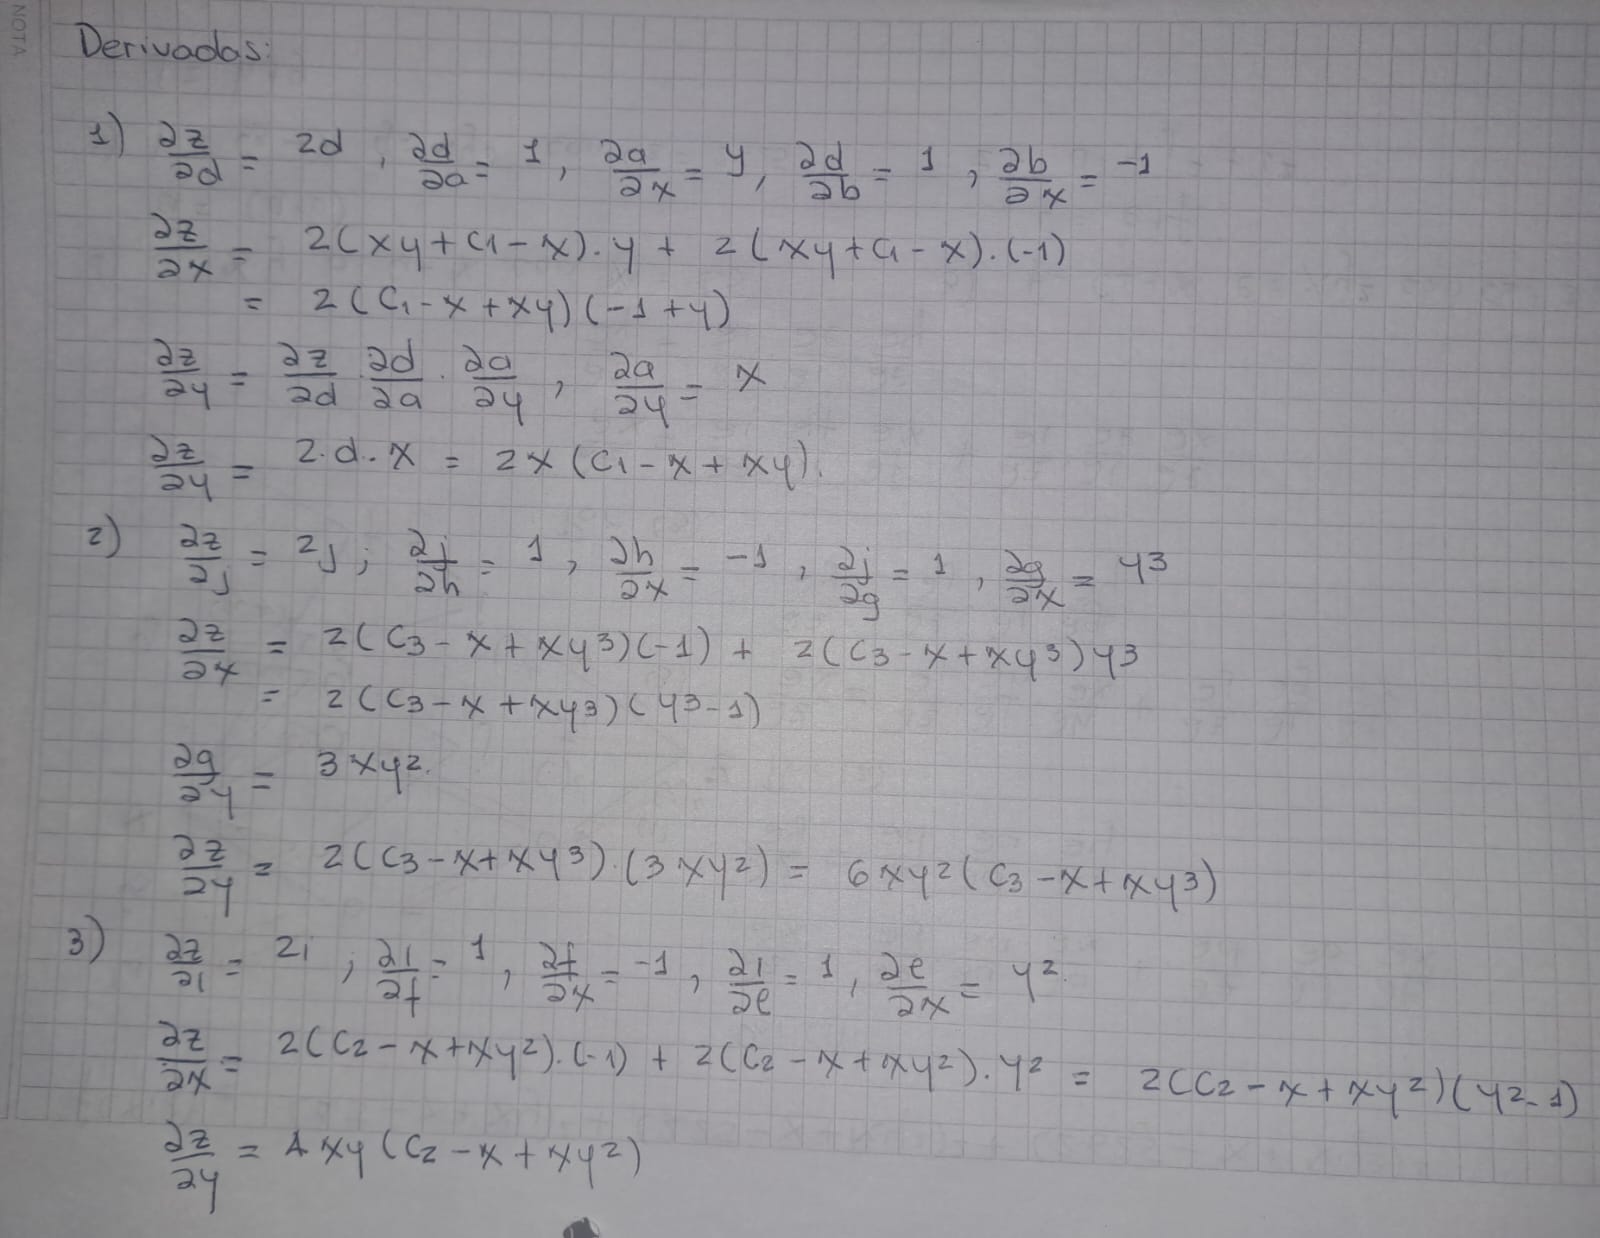 NOTA
Derivadas:
1) ∂z/∂d = 2d, ∂d/∂a = 1, ∂a/∂x = y, ∂d/∂b = 1, ∂b/∂x = -1
∂z/∂x = 2(xy + c₁ - x)·y + 2(xy + c₁ - x)·(-1)
= 2(c₁ - x + xy)(-1 + y)
∂z/∂y = ∂z/∂d · ∂d/∂a · ∂a/∂y, ∂a/∂y = x
∂z/∂y = 2·d··x = 2x(c₁ - x + xy).
2) ∂z/∂j = 2j; ∂j/∂h = 1, ∂h/∂x = -1, ∂j/∂g = 1, ∂g/∂x = y³
∂z/∂x = 2(c₃ - x + xy³)(-1) + 2(c₃ - x + xy³)y³
= 2(c₃ - x + xy³)(y³ - 1)
∂g/∂y = 3xy².
∂z/∂y = 2(c₃ - x + xy³)·(3xy²) = 6xy²(c₃ - x + xy³)
3) ∂z/∂i = 2i; ∂i/∂f = 1, ∂f/∂x = -1, ∂i/∂e = 1, ∂e/∂x = y².
∂z/∂x = 2(c₂ - x + xy²)·(-1) + 2(c₂ - x + xy²)·y² = 2(c₂ - x + xy²)(y² - 1)
∂z/∂y = 4xy(c₂ - x + xy²)